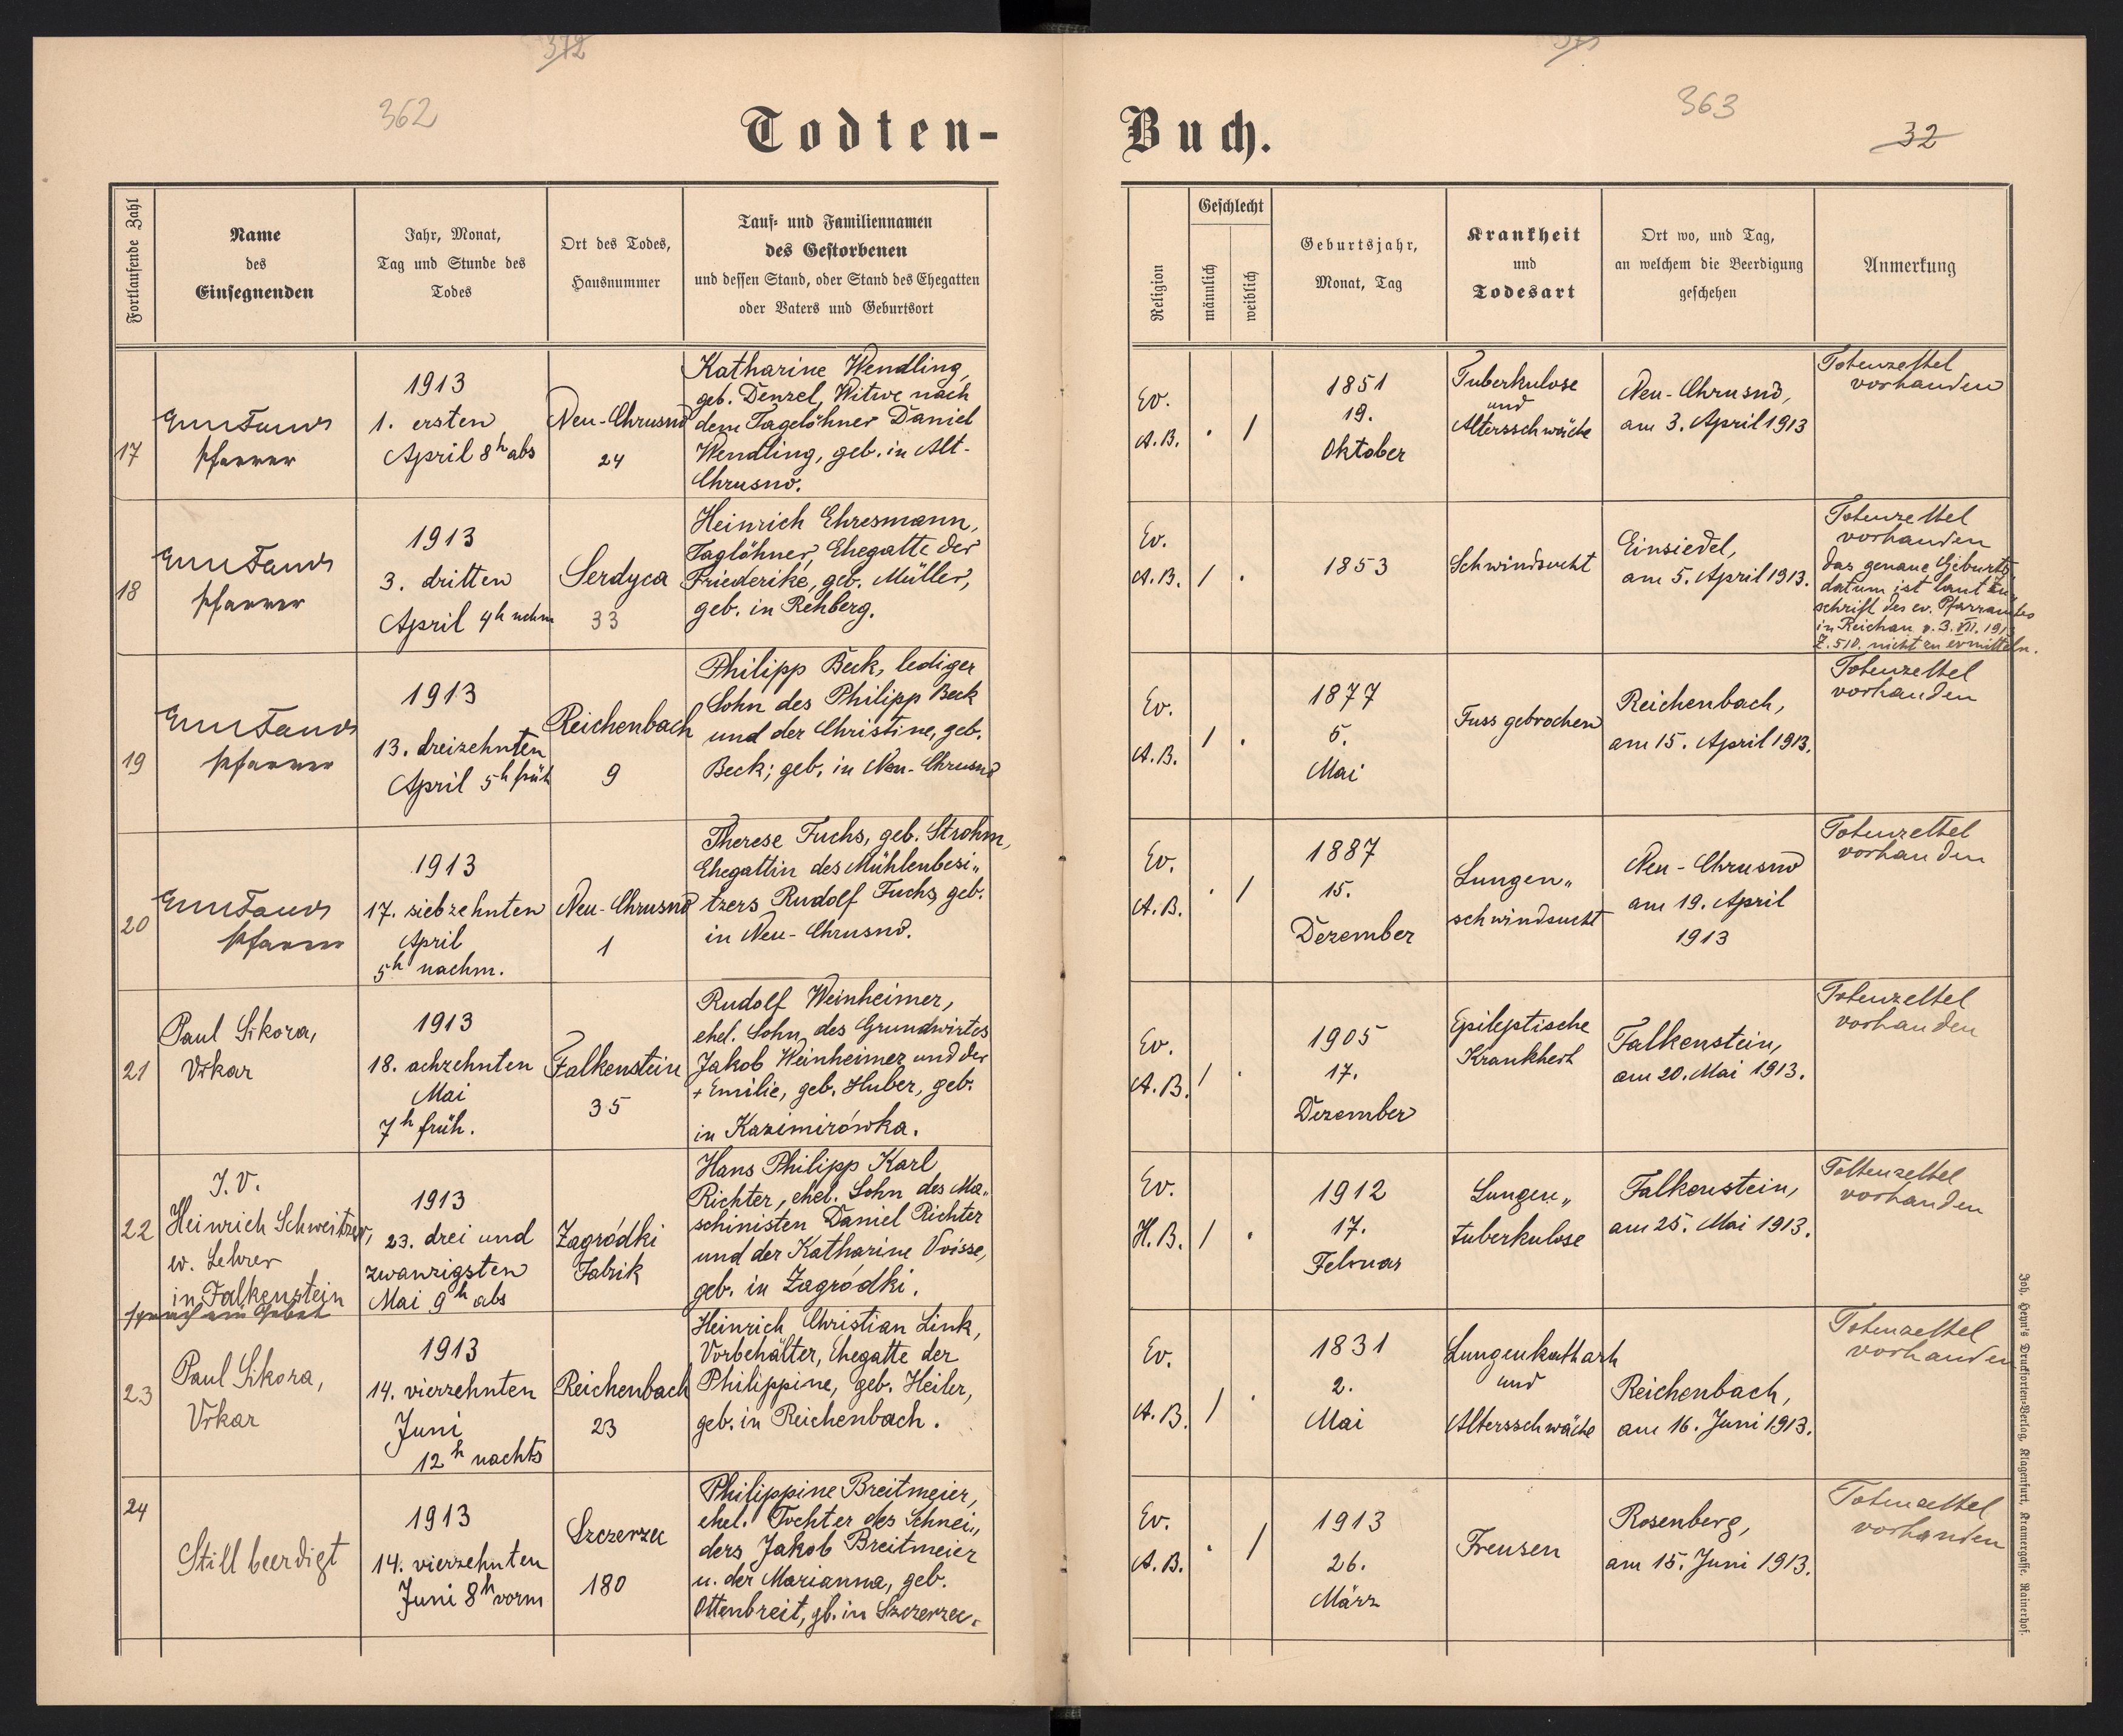 372
371
362
363
32
Todten-
Buch.
Fortlaufende Zahl
Name
des
Einsegnenden
Jahr, Monat,
Tag und Stunde des
Todes
Ort des Todes,
Hausnummer
Tauf- und Familiennamen
des Gestorbenen
und dessen Stand, oder Stand des Ehegatten
oder Vaters und Geburtsort
Religion
Geschlecht
männlich
weiblich
Geburtsjahr,
Monat, Tag
Krankheit
und
Todesart
Ort wo, und Tag,
an welchem die Beerdigung
geschehen
Anmerkung
17
Pfarrer
1913
1. ersten
April 8h abs
Neu-Chrusno
24
Katharine Wendling,
geb. Denzel, Witwe nach
dem Tagelöhner Daniel
Wendling, geb. in Alt-
Chrusno.
Ev.
A.B.
. /
1851
19.
Oktober
Tuberkulose
und
Altersschwäche
Neu-Chrusno,
am 3. April 1913
Totenzettel
vorhanden
18
Pfarrer
1913
3. dritten
April 4h nchm
Serdyca
33
Heinrich Ehresmann,
Taglöhner, Ehegatte der
Friederike, geb. Müller,
geb. in Rehberg.
Ev.
A.B.
/ .
1853
Schwindsucht
Einsiedel,
am 5. April 1913.
Totenzettel
vorhanden
das genaue Geburts
datum ist laut Zu
schrift des ev. Pfarramtes
in Reichau v. 3. VII. 1913
Z. 510. nicht zu ermitteln.
19
Pfarrer
1913
13. dreizehnten
April 5h früh
Reichenbach
9
Philipp Beck, lediger
Sohn des Philipp Beck
und der Christine, geb.
Beck; geb. in Neu-Chrusno
Ev.
A.B.
/ .
1877
5.
Mai
Fuss gebrochen
Reichenbach,
am 15. April 1913.
Totenzettel
vorhanden
20
Pfarrer
1913
17. siebzehnten
April
5h nachm.
Neu-Chrusno
1
Therese Fuchs, geb. Strohm,
Ehegattin des Mühlenbesi„
tzers Rudolf Fuchs, geb.
in Neu-Chrusno.
Ev.
A.B.
. /
1887
15.
Dezember
Lungen„
schwindsucht
Neu-Chrusno
am 19. April
1913
Totenzettel
vorhanden
21
Paul Sikora,
Vikar
1913
18. achzehnten
Mai
7h früh.
Falkenstein
35
Rudolf Weinheimer,
ehel. Sohn des Grundwirtes
Jakob Weinheimer und der
+ Emilie, geb. Huber, geb.
in Kazimirówka.
Ev.
A.B.
/ .
1905
17.
Dezember
Epileptische
Krankheit
Falkenstein,
am 20. Mai 1913.
Totenzettel
vorhanden
22
I.V.
Heinrich Schweitzer,
ev. Lehrer
in Falkenstein
1913
23. drei und
zwanzigsten
Mai 9h abs
Zagródki
Fabrik
Hans Philipp Karl
Richter, ehel. Sohn des Ma„
schinisten Daniel Richter
und der Katharine Voisse,
geb. in Zagródki.
Ev.
H.B.
/ .
1912
17.
Februar
Lungen„
tuberkulose
Falkenstein,
am 25. Mai 1913.
Tottenzettel
vorhanden
23
Paul Sikora,
Vikar
1913
14. vierzehnten
Juni
12h nachts
Reichenbach
23
Heinrich Christian Link,
Vorbehälter, Ehegatte der
Philippine, geb. Heiler,
geb. in Reichenbach.
Ev.
A.B.
/ .
1831
2.
Mai
Lungenkatharh
und
Altersschwäche
Reichenbach,
am 16. Juni 1913.
Totenzettel
vorhanden
24
Still beerdigt
1913
14. vierzehnten
Juni 8h vorm
Szczerzec
180
Philippine Breitmeier,
ehel. Tochter des Schnei„
ders Jakob Breitmeier
u. der Marianna, geb.
Ottenbreit, gb. in Szczerzec.
Ev.
A.B.
. /
1913
26.
März
Freusen
Rosenberg,
am 15. Juni 1913.
Totenzettel
vorhanden
Joh. Heyn's Drucksorten-Verlag, Klagenfurt, Kramergasse, Rainerhof.